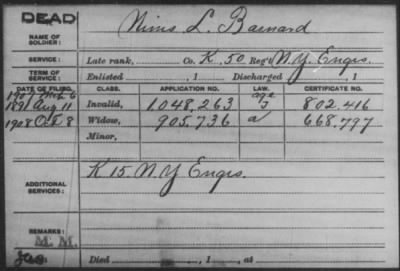 DEAD
NAME OF SOLDIER: Nims L. Barnard
SERVICE: Late rank, Co. K, 50 Reg't N.Y. Engrs.
TERM OF SERVICE: Enlisted , 1 Discharged , 1
DATE OF FILING. CLASS. APPLICATION NO. LAW. CERTIFICATE NO.
1891 Aug 11 Invalid, 1.048.263 age 802.416
1908 Oct 8 Widow, 905.736 a 668.797
Minor,
ADDITIONAL SERVICES: K 15. N.Y. Engrs.
REMARKS:
M. M.
Died , 1 , at